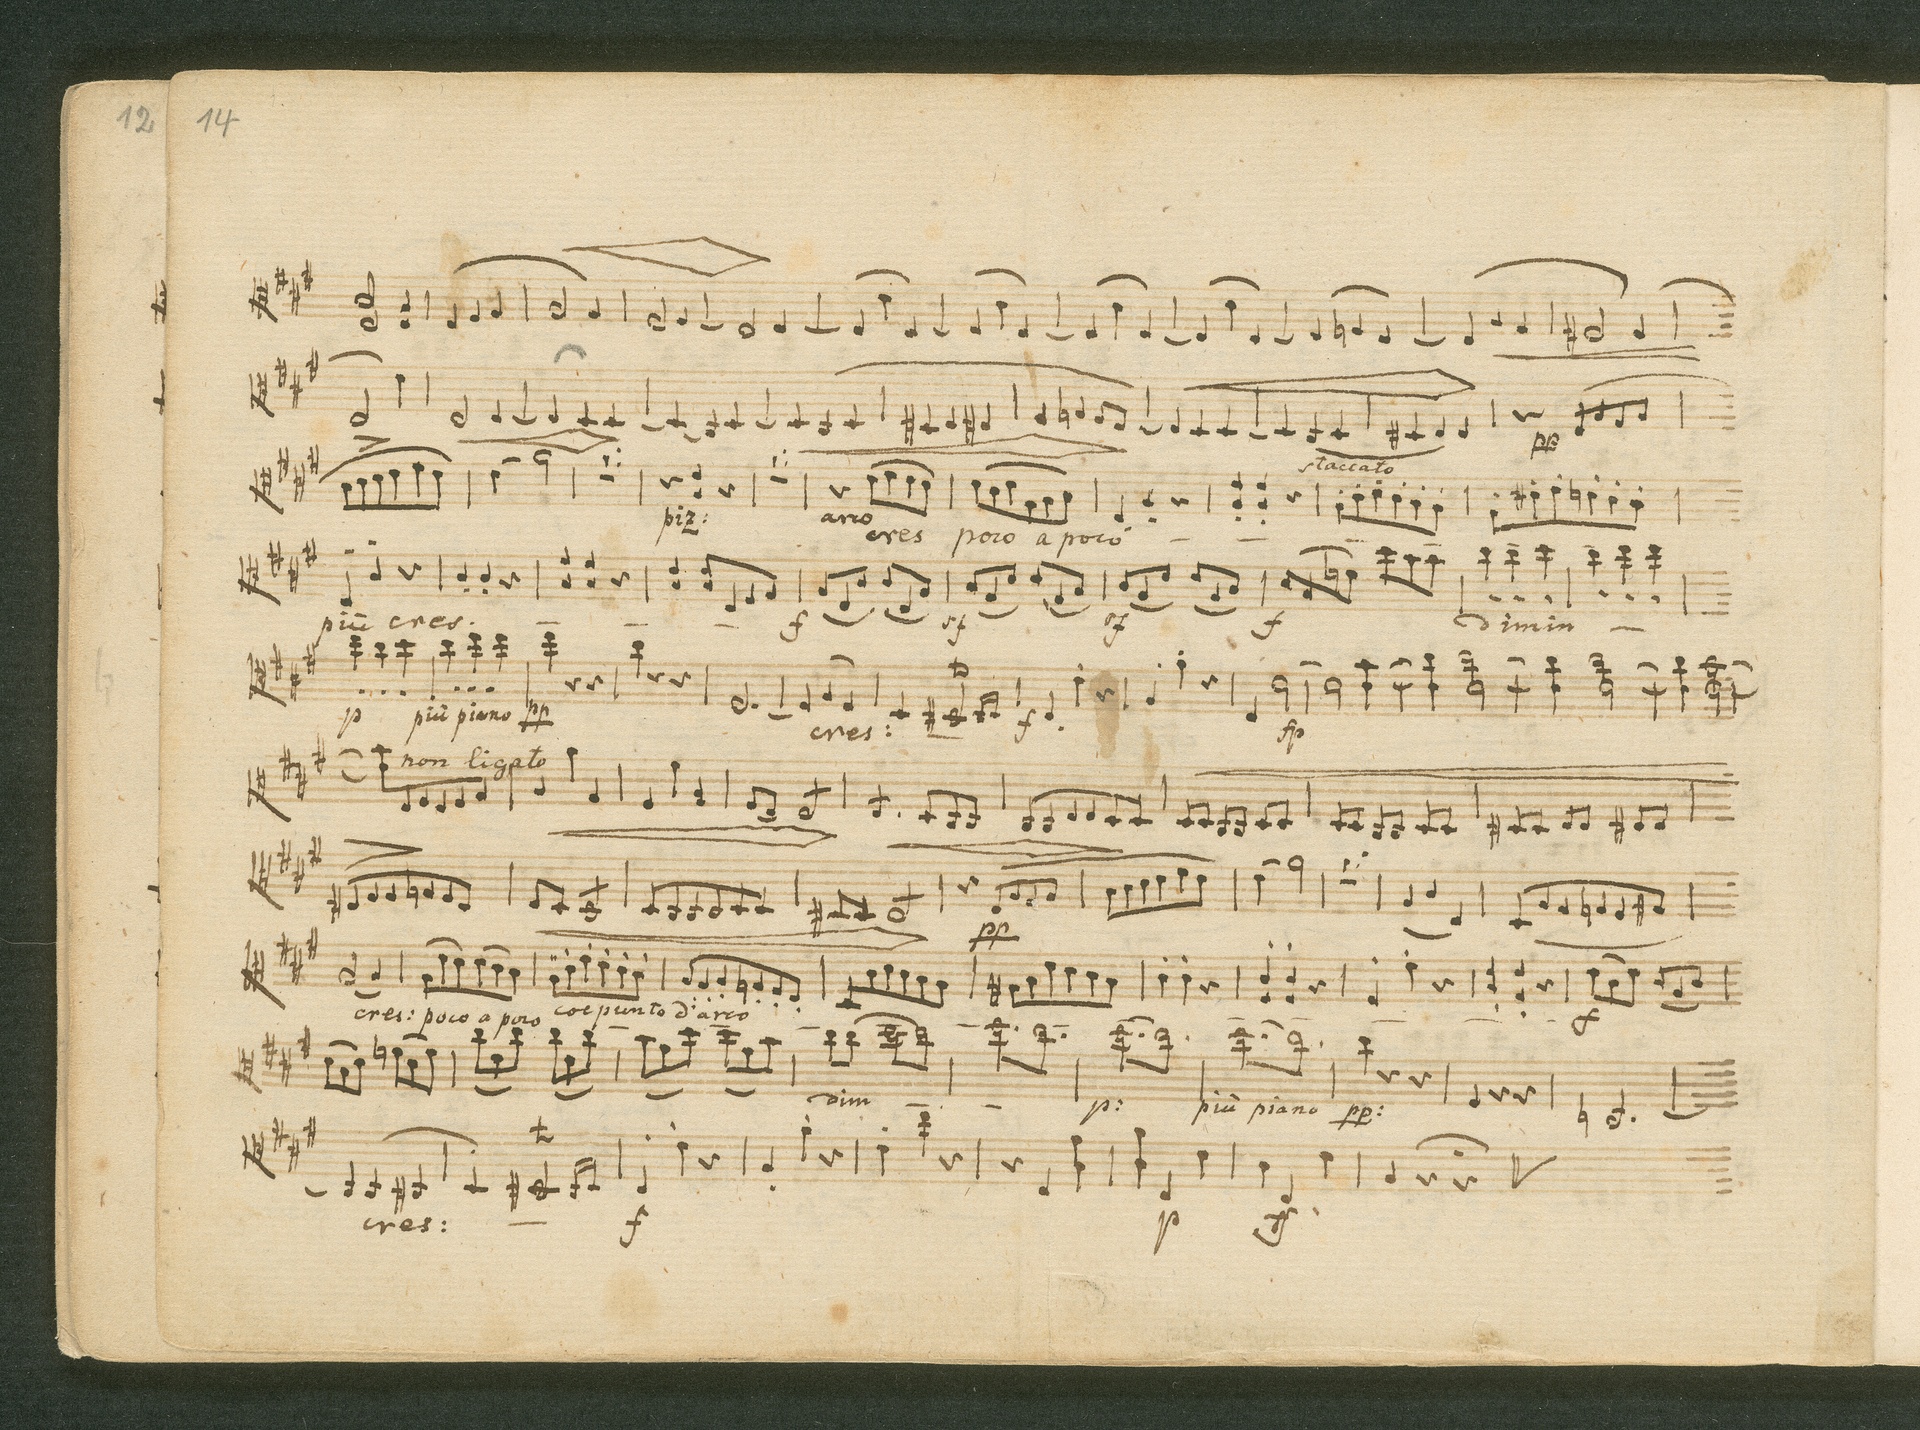 12 14
staccato pp
piz: arco cres poco a poco
più cres. f sf sf f dimin
p più piano pp cres: f fp
non ligato
pp
cres: poco a poco col punto d'arco f
dim p: più piano pp:
cres: f p